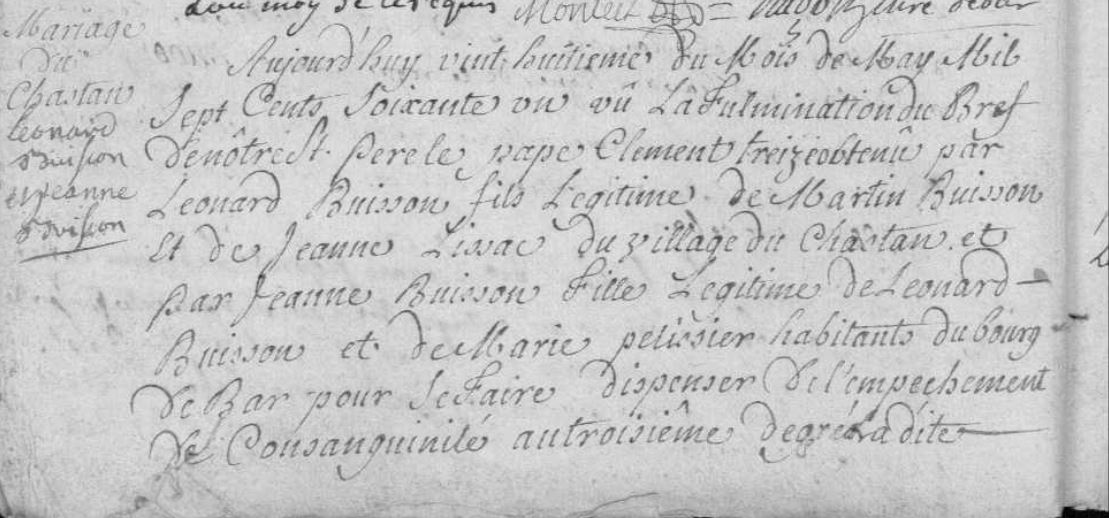 Mariage
du
Chastan
Leonard
Buisson
et Jeanne
Buisson
Aujourd'huy vint huitieme du Mois de May Mil
Sept Cents Soixante un vû La Fulmination du Bref
de nôtre St. pere le pape Clement treize obtenû par
Leonard Buisson fils Legitime de Martin Buisson
Et de Jeanne Lissac du village du Chastan et
par Jeanne Buisson Fille Legitime de Leonard
Buisson et de Marie pelissier habitants du bourg
de Bar pour Se Faire dispenser de l'empechement
de Consanguinité au troisiême degré